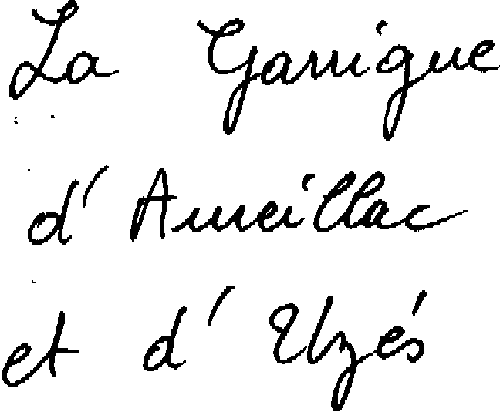 La Garrigue
d'Aureillac
et d'Uzés